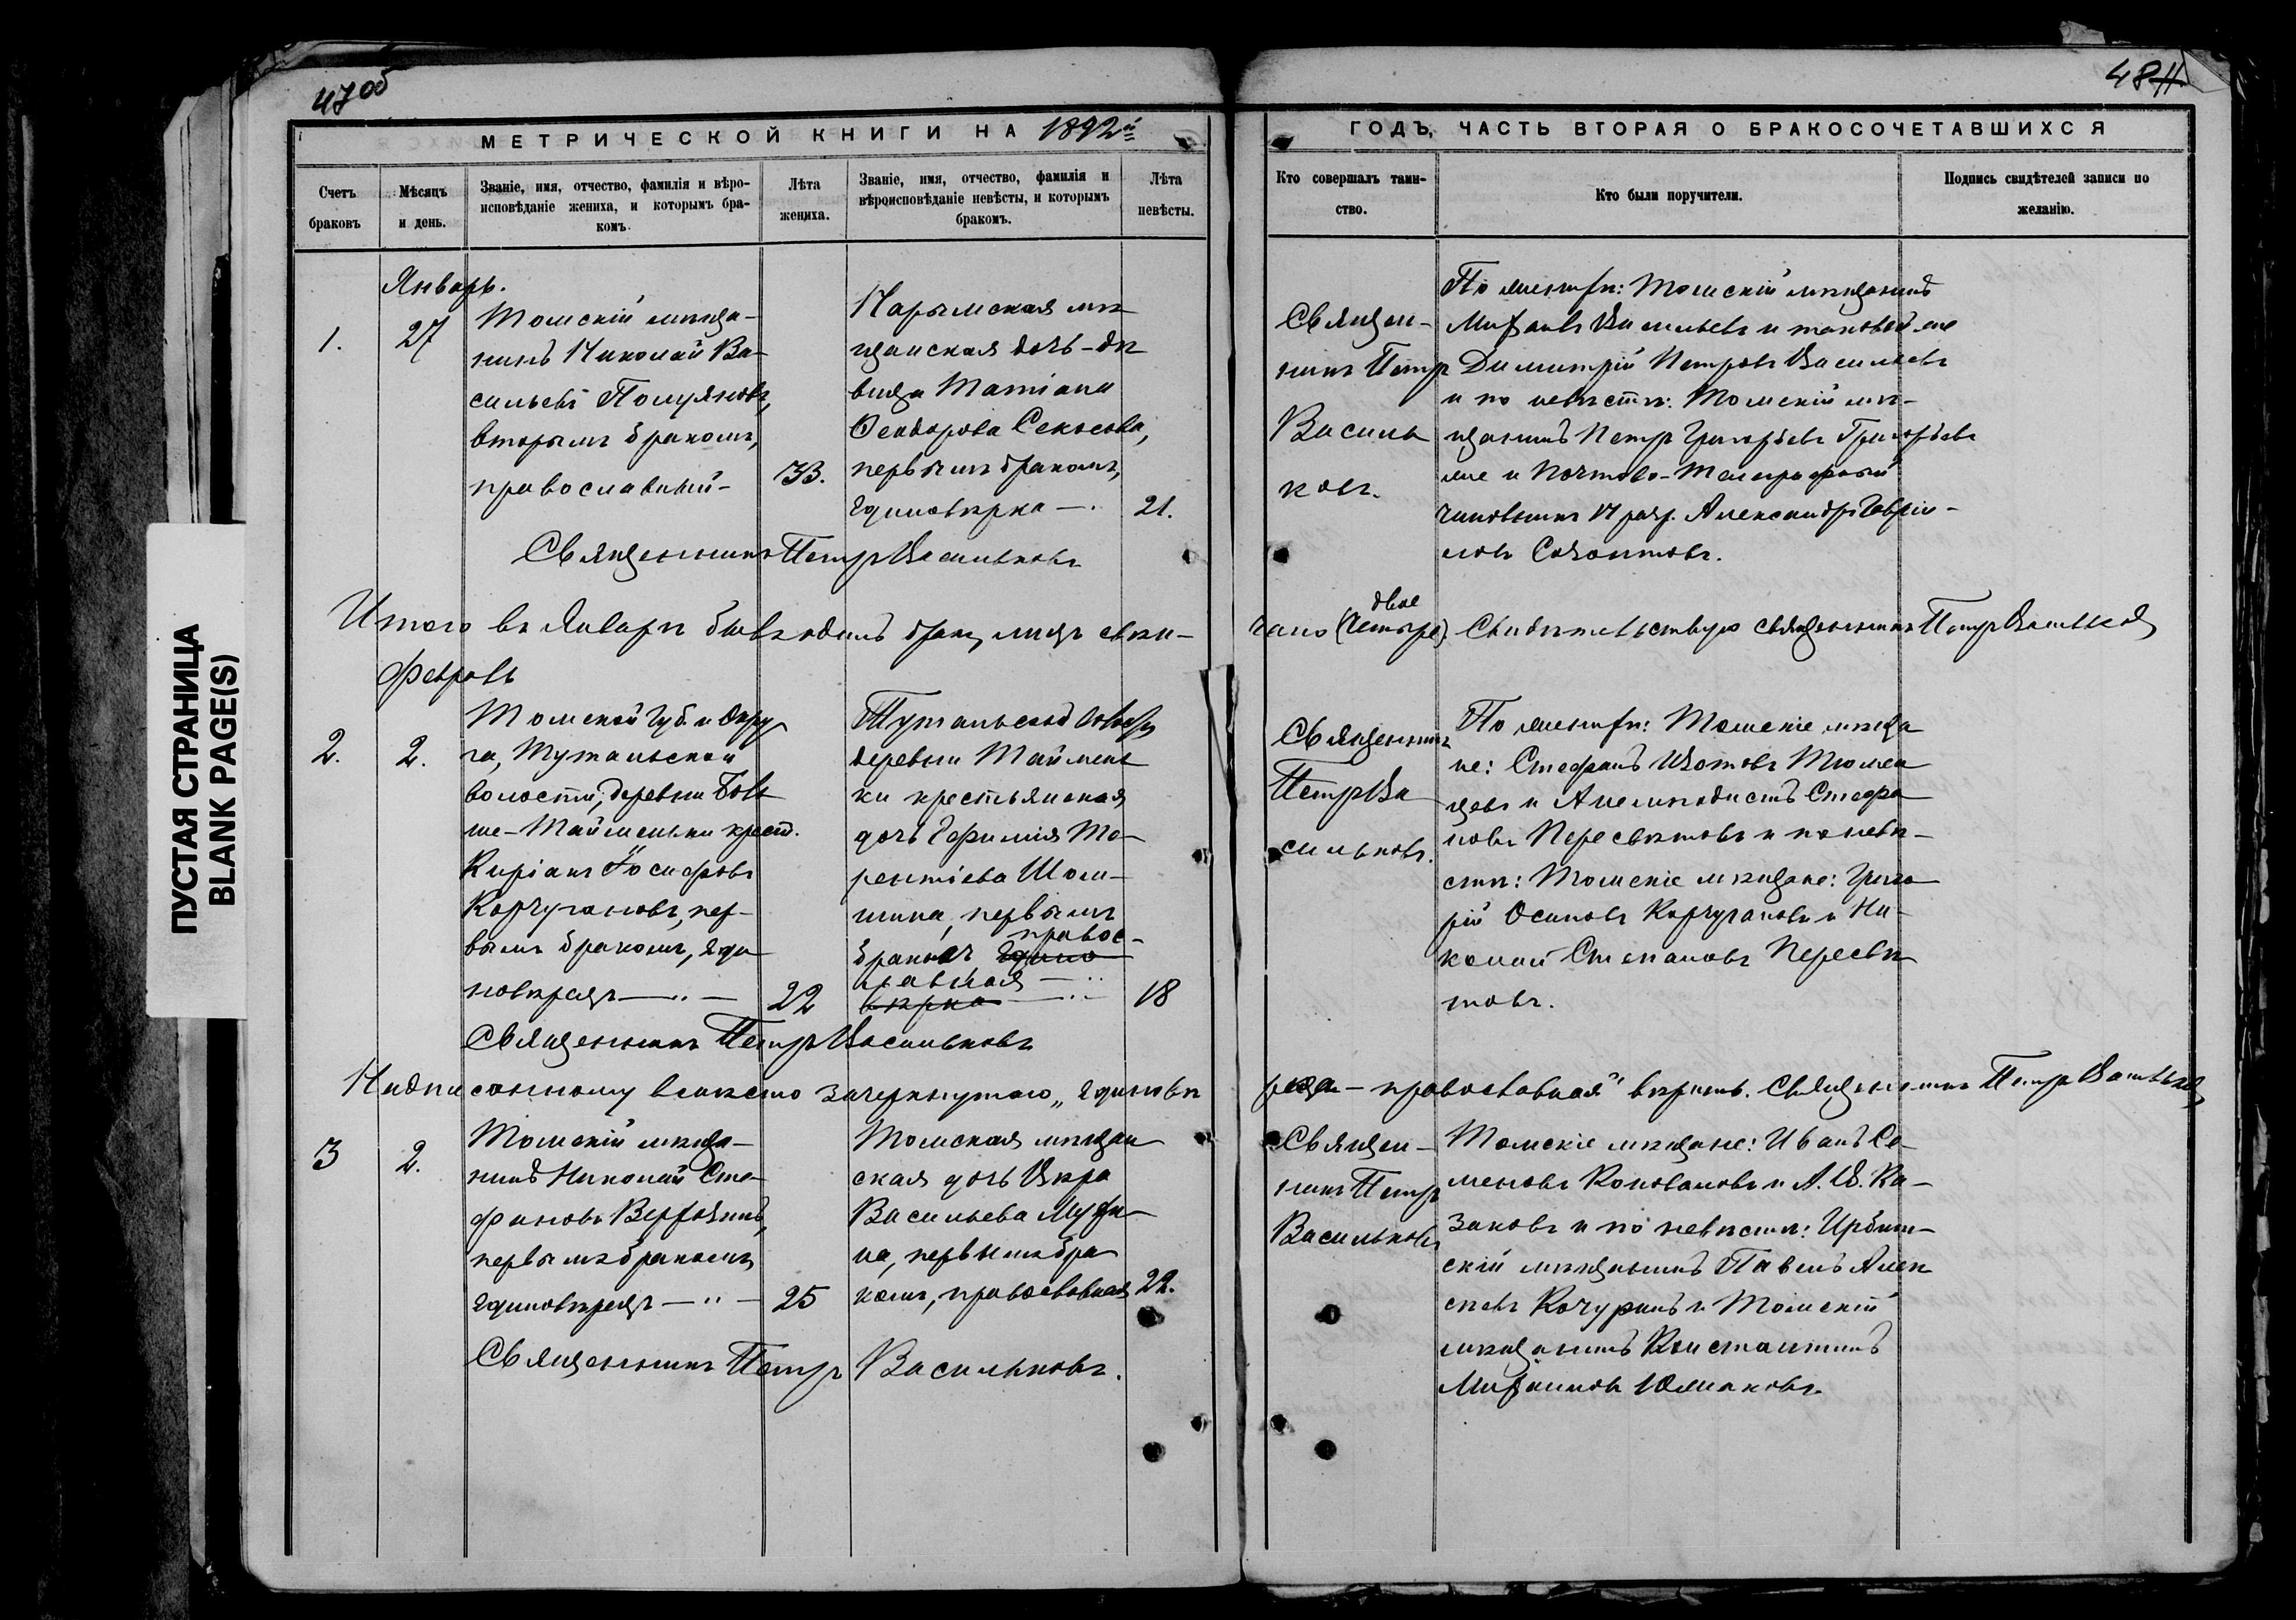 47об
48
МЕТРИЧЕСКОЙ КНИГИ НА 1892й
ГОДЪ, ЧАСТЬ ВТОРАЯ О БРАКОСОЧЕТАВШИХСЯ
Счетъ
браковъ
Мѣсяцъ
и день.
Званіе, имя, отчество, фамилія и вѣро-
исповѣданіе жениха, и которымъ бра-
комъ.
Лѣта
жениха.
Званіе, имя, отчество, фамилія и
вѣроисповѣданіе невѣсты, и которымъ
бракомъ.
Лѣта
невѣсты.
Кто совершалъ таин-
ство.
Кто были поручители.
Подпись свидѣтелей записи по
желанію.
Январь.
1.
27
Томскій мѣща-
нинъ Николай Ва-
сильевъ Полуяновъ,
вторымъ бракомъ,
православный-
33.
Нарымская мѣ
щанская дочь-дѣ
вица Татіана
Ѳеодорова
первымъ бракомъ,
единовѣрка —.
21.
Священ-
никъ Петръ
Василь
ковъ.
По женихѣ: Томскій мѣщанинъ
Василь­евъ и таковой же
Димитрій Петровъ Васильевъ
и по невѣстѣ: Томскій мѣ-
щанинъ Петръ Григорьевъ Григорьев
же и Почтово-Телеграфный
чиновникъ VI разр. Александръ Гаврил-
ловъ
Священникъ Петръ Васильковъ
Итого въ Январѣ бывъ одинъ бракъ, лицъ свѣн-
чано (Четыре) двое Свидѣтельствую священникъ Петръ Васильковъ
Февраль
2.
2.
Томской губ. и Окру
га, Тутальской
волости, деревни Боль
ше-Тайменьки крест.
Киріакъ Іосифовъ
Корчугановъ, пер-
вымъ бракомъ, еди
новѣрецъ —..—
22
Тутальской волости
деревни Таймень
ки крестьянская
дочь Ефимія Те-
рентіева Шом-
шина, первымъ
бракомъ едино правос-
лавная —..
вѣрка —..—
18
Священникъ
Петръ Ва
сильковъ.
По женихѣ: Томскіе мѣща
не: Стефанъ Изотовъ Тюмен
цевъ и Анемподистъ Стефа
новъ Пересвѣтовъ и по невѣ-
стѣ: Томскіе мѣщане: Григо
рій Осиповъ Корчугановъ и Ни-
колай Степановъ Пересвѣ
товъ.
Священникъ Петръ Васильковъ
Надписанному вмѣсто зачеркнутаго „единовѣ
рца - православная" вѣрить. Священникъ Петръ Васильковъ
3
2.
Томскій мѣща-
нинъ Николай Сте-
фановъ Верхозинъ,
первымъ бракомъ
единовѣрецъ —..—
25
Томская мѣщан
ская дочь Вѣра
Васильева Мухи
на, первымъ бра
комъ, православная
22.
Священ-
никъ Петръ
Васильковъ
Томскіе мѣщане: Иванъ Се-
меновъ Коноваловъ и А. В. Ка-
заковъ и по невѣстѣ: Ирбит-
скій мѣщанинъ Павелъ Алек
сѣевъ Кочуринъ и Томскій
мѣщанинъ Константинъ
Михаиловъ
Священникъ Петръ Васильковъ.
ПУСТАЯ СТРАНИЦА
BLANK PAGE(S)